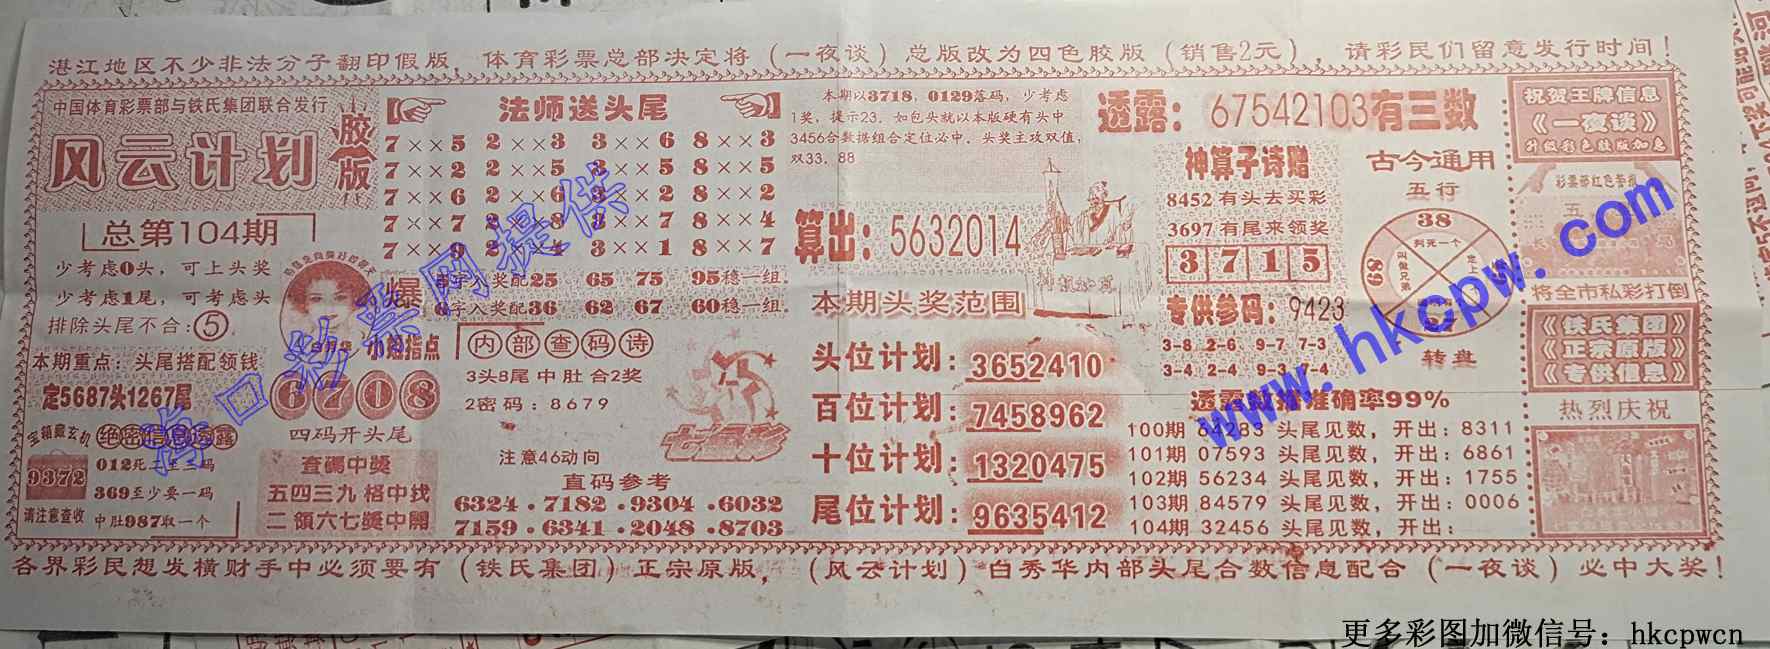 湛江地区不少非法分子翻印假版，体育彩票总部决定将（一夜谈）总版改为四色胶版（销售2元），请彩民们留意发行时间！
中国体育彩票部与铁氏集团联合发行
风云计划
胶版
总第104期
少考虑0头，可上头奖
少考虑1尾，可考虑头
排除头尾不合：⑤
本期重点：头尾搭配领钱
定5687头1267尾
宝箱藏玄机
绝密信息透露
9372
请注意查收
012死二至三码
369至少要一码
中肚987取一个
法师送头尾
7××5 2××3 3××6 8××3
7××2 2××5 3××5 8××5
7××6 2××6 3××2 8××2
7××7 2××8 3××7 8××4
7××9 2××4 3××1 8××7
字入奖配25 65 75 95稳一组.
字入奖配36 62 67 60稳一组.
爆
小姐指点
6708
四码开头尾
查码中奖
五四三九格中找
二领六七奖中开
内部查码诗
3头8尾中肚合2奖
2密码：8679
注意46动向
七星奖
直码参考
6324.7182.9304.6032
7159.6341.2048.8703
本期以3718，0129落码，少考虑
1奖，提示23，如包头就以本版硬有头中
3456合数据组合定位必中，头奖主攻双值，
双33，88
算出：5632014
本期头奖范围
头位计划：3652410
百位计划：7458962
十位计划：1320475
尾位计划：9635412
透露：67542103有三数
神算子诗赠
8452有头去买彩
3697有尾来领奖
3715
专供参码：9423
3-8 2-6 9-7 7-3
3-4 2-4 9-3 7-4
古今通用
五行
38
列死一个
转盘
透露数据准确率99%
100期 64283 头尾见数，开出：8311
101期 07593 头尾见数，开出：6861
102期 56234 头尾见数，开出：1755
103期 84579 头尾见数，开出：0006
104期 32456 头尾见数，开出：
祝贺王牌信息
《一夜谈》
升级彩色胶版加急
彩票部红色警报
将全市私彩打倒
《铁氏集团》
《正宗原版》
《专供信息》
热烈庆祝
各界彩民想发横财手中必须要有（铁氏集团）正宗原版，（风云计划）白秀华内部头尾合数信息配合（一夜谈）必中大奖！
海口彩票网提供
www.hkcpw.com
更多彩图加微信号：hkcpwcn